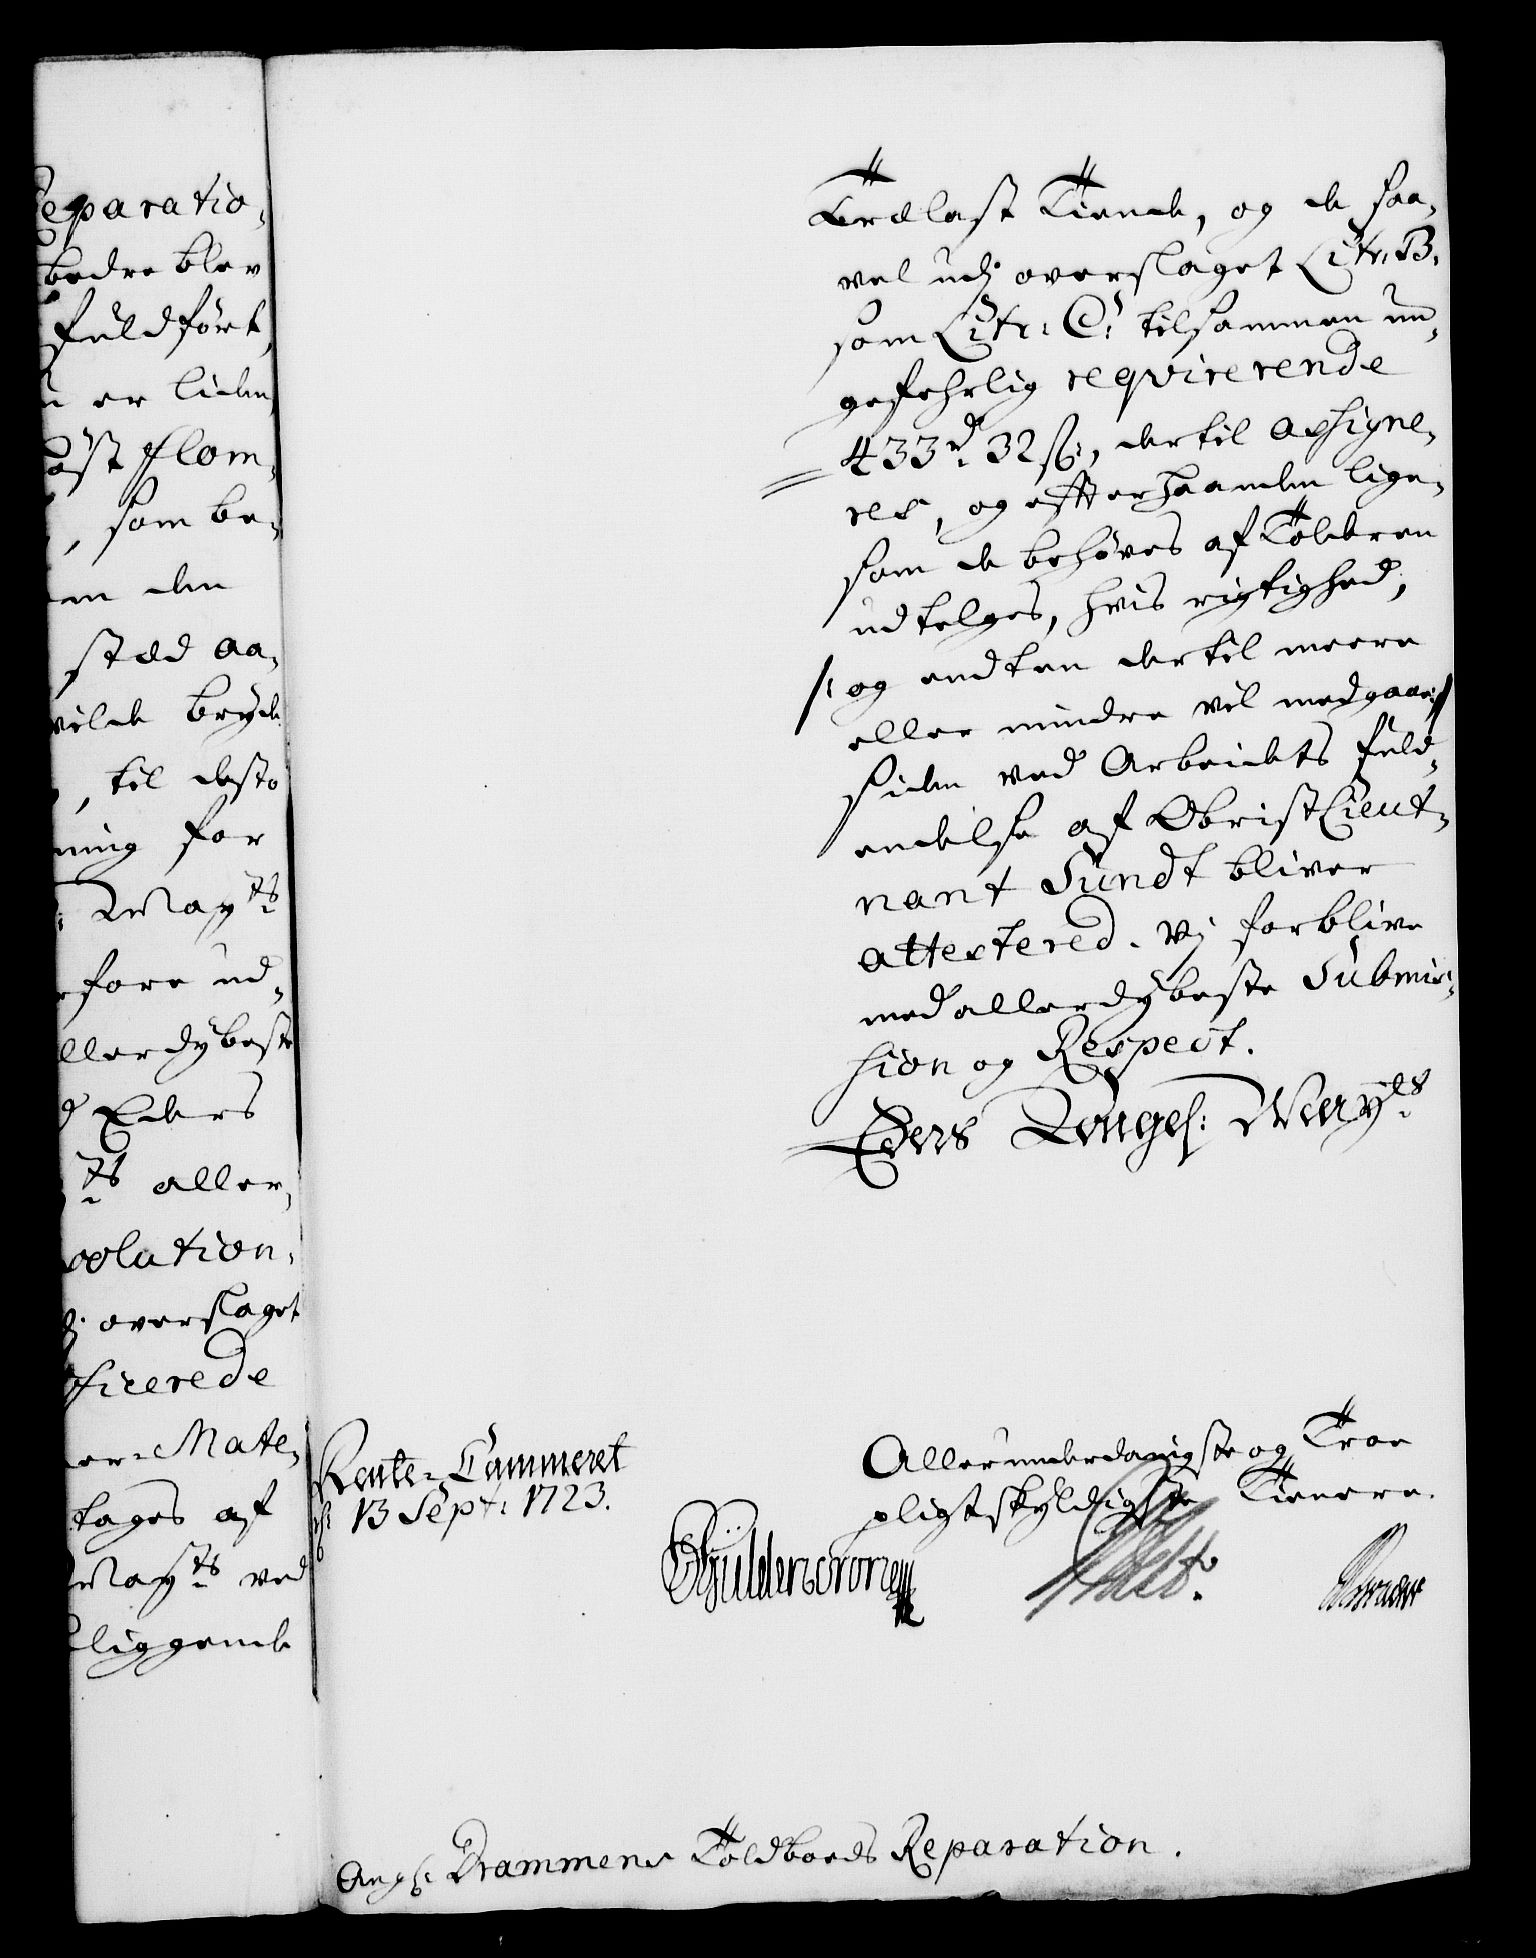 eparatio-
bedre blev
fuldført,
er liden
øst flom-
, som be-
em den
sted aa-
vilde bryde
, til desto
ning for
Mayts
fore ud-
llerdybeste
Eders
ts aller-
solution,
j overslaget
ficerede
er- Mate-
tages af
Mayts ved
liggende
Trælast Tiende, og de saa-
vel udj overslaget Litr: B.
som Litr: C: tilsammen un-
gefehrlig reqvirerende
433 rd. 32 sk:, dertil assigne-
res, og efterhaanden lige-
som de behøves af Tolderen
udtelges, hvis rigtighed,
/: og endten dertil meere
eller mindre vil medgaae :/
siden ved Arbeidets fuld-
endelse af ObristLieut-
nant Sundt bliver
attestered. Vj forblive
med allerdybeste Submis-
sion og Respect.
Eders Kongel: Mayts
Rente-Cammeret
13 Sept: 1723.
Allerunderdanigste og Troe
pligtskyldigste Tienere.
Güldencrone
Ang: Drammens Toldboeds Reparation.